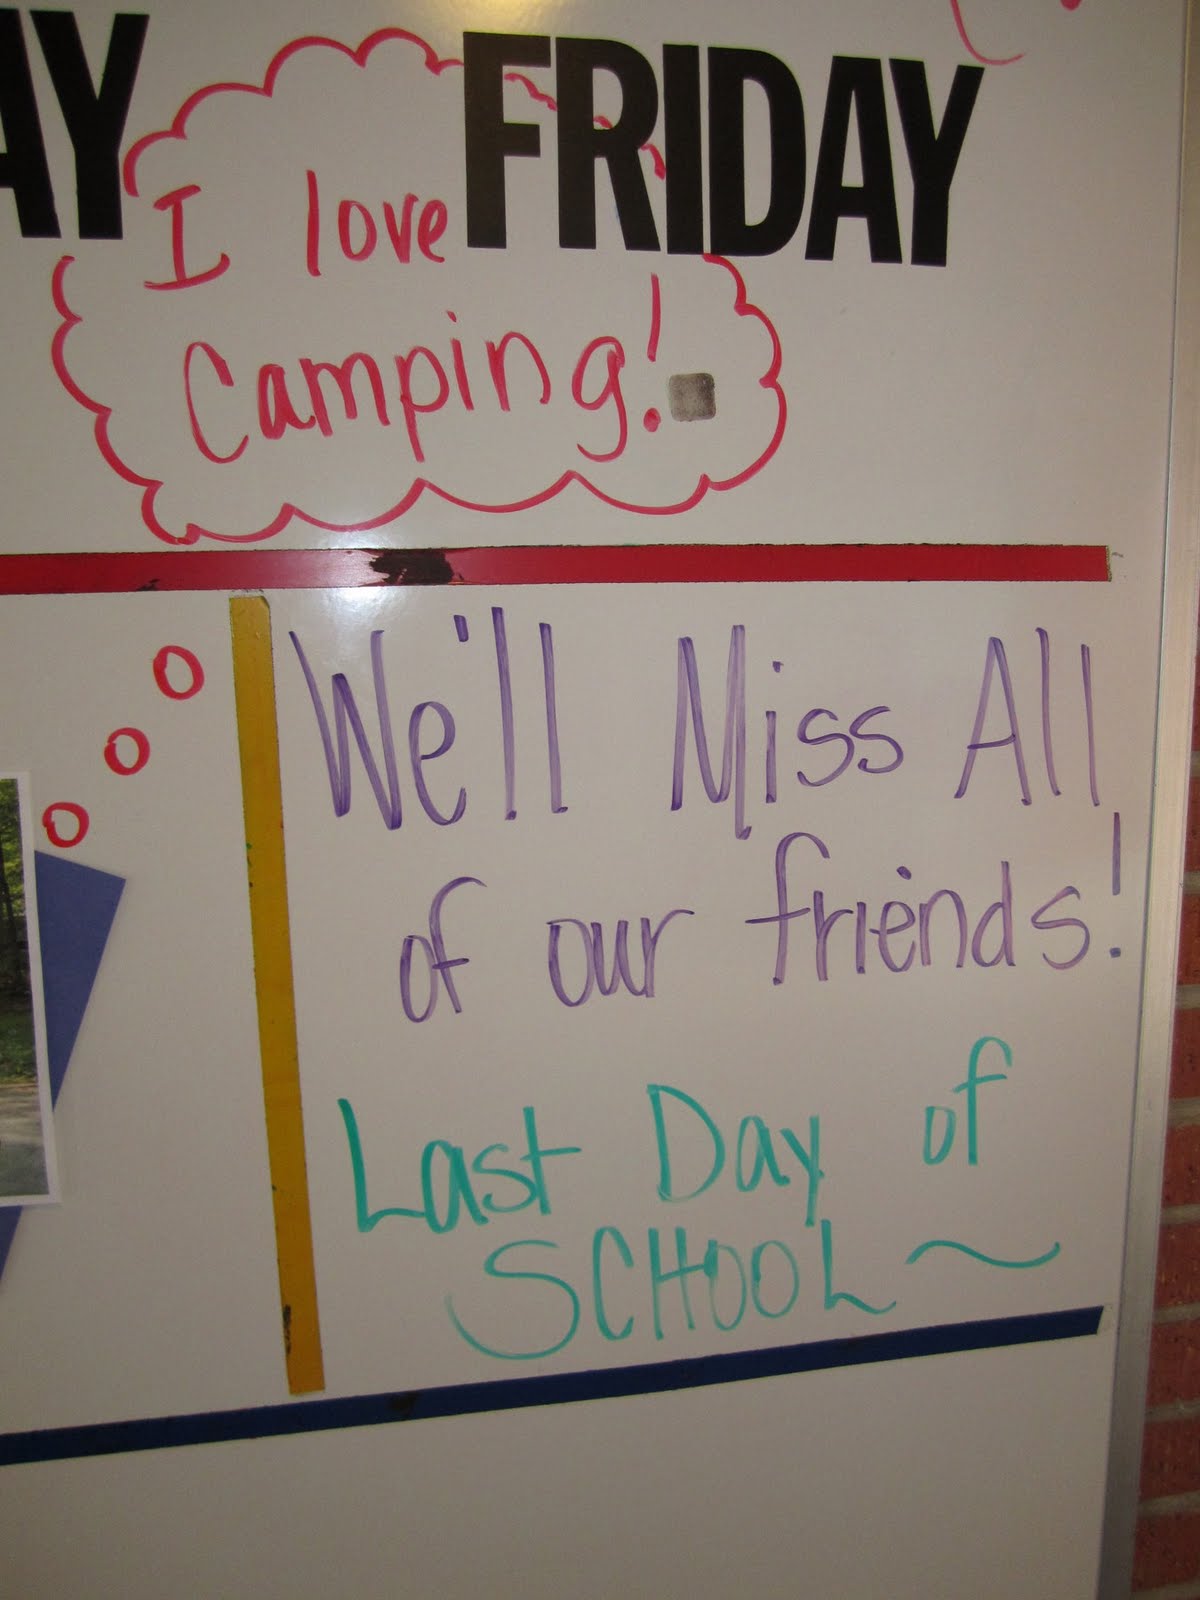 AY FRIDAY
I love
Camping!
We'll Miss All
of our friends!
Last Day of
SCHOOL ~